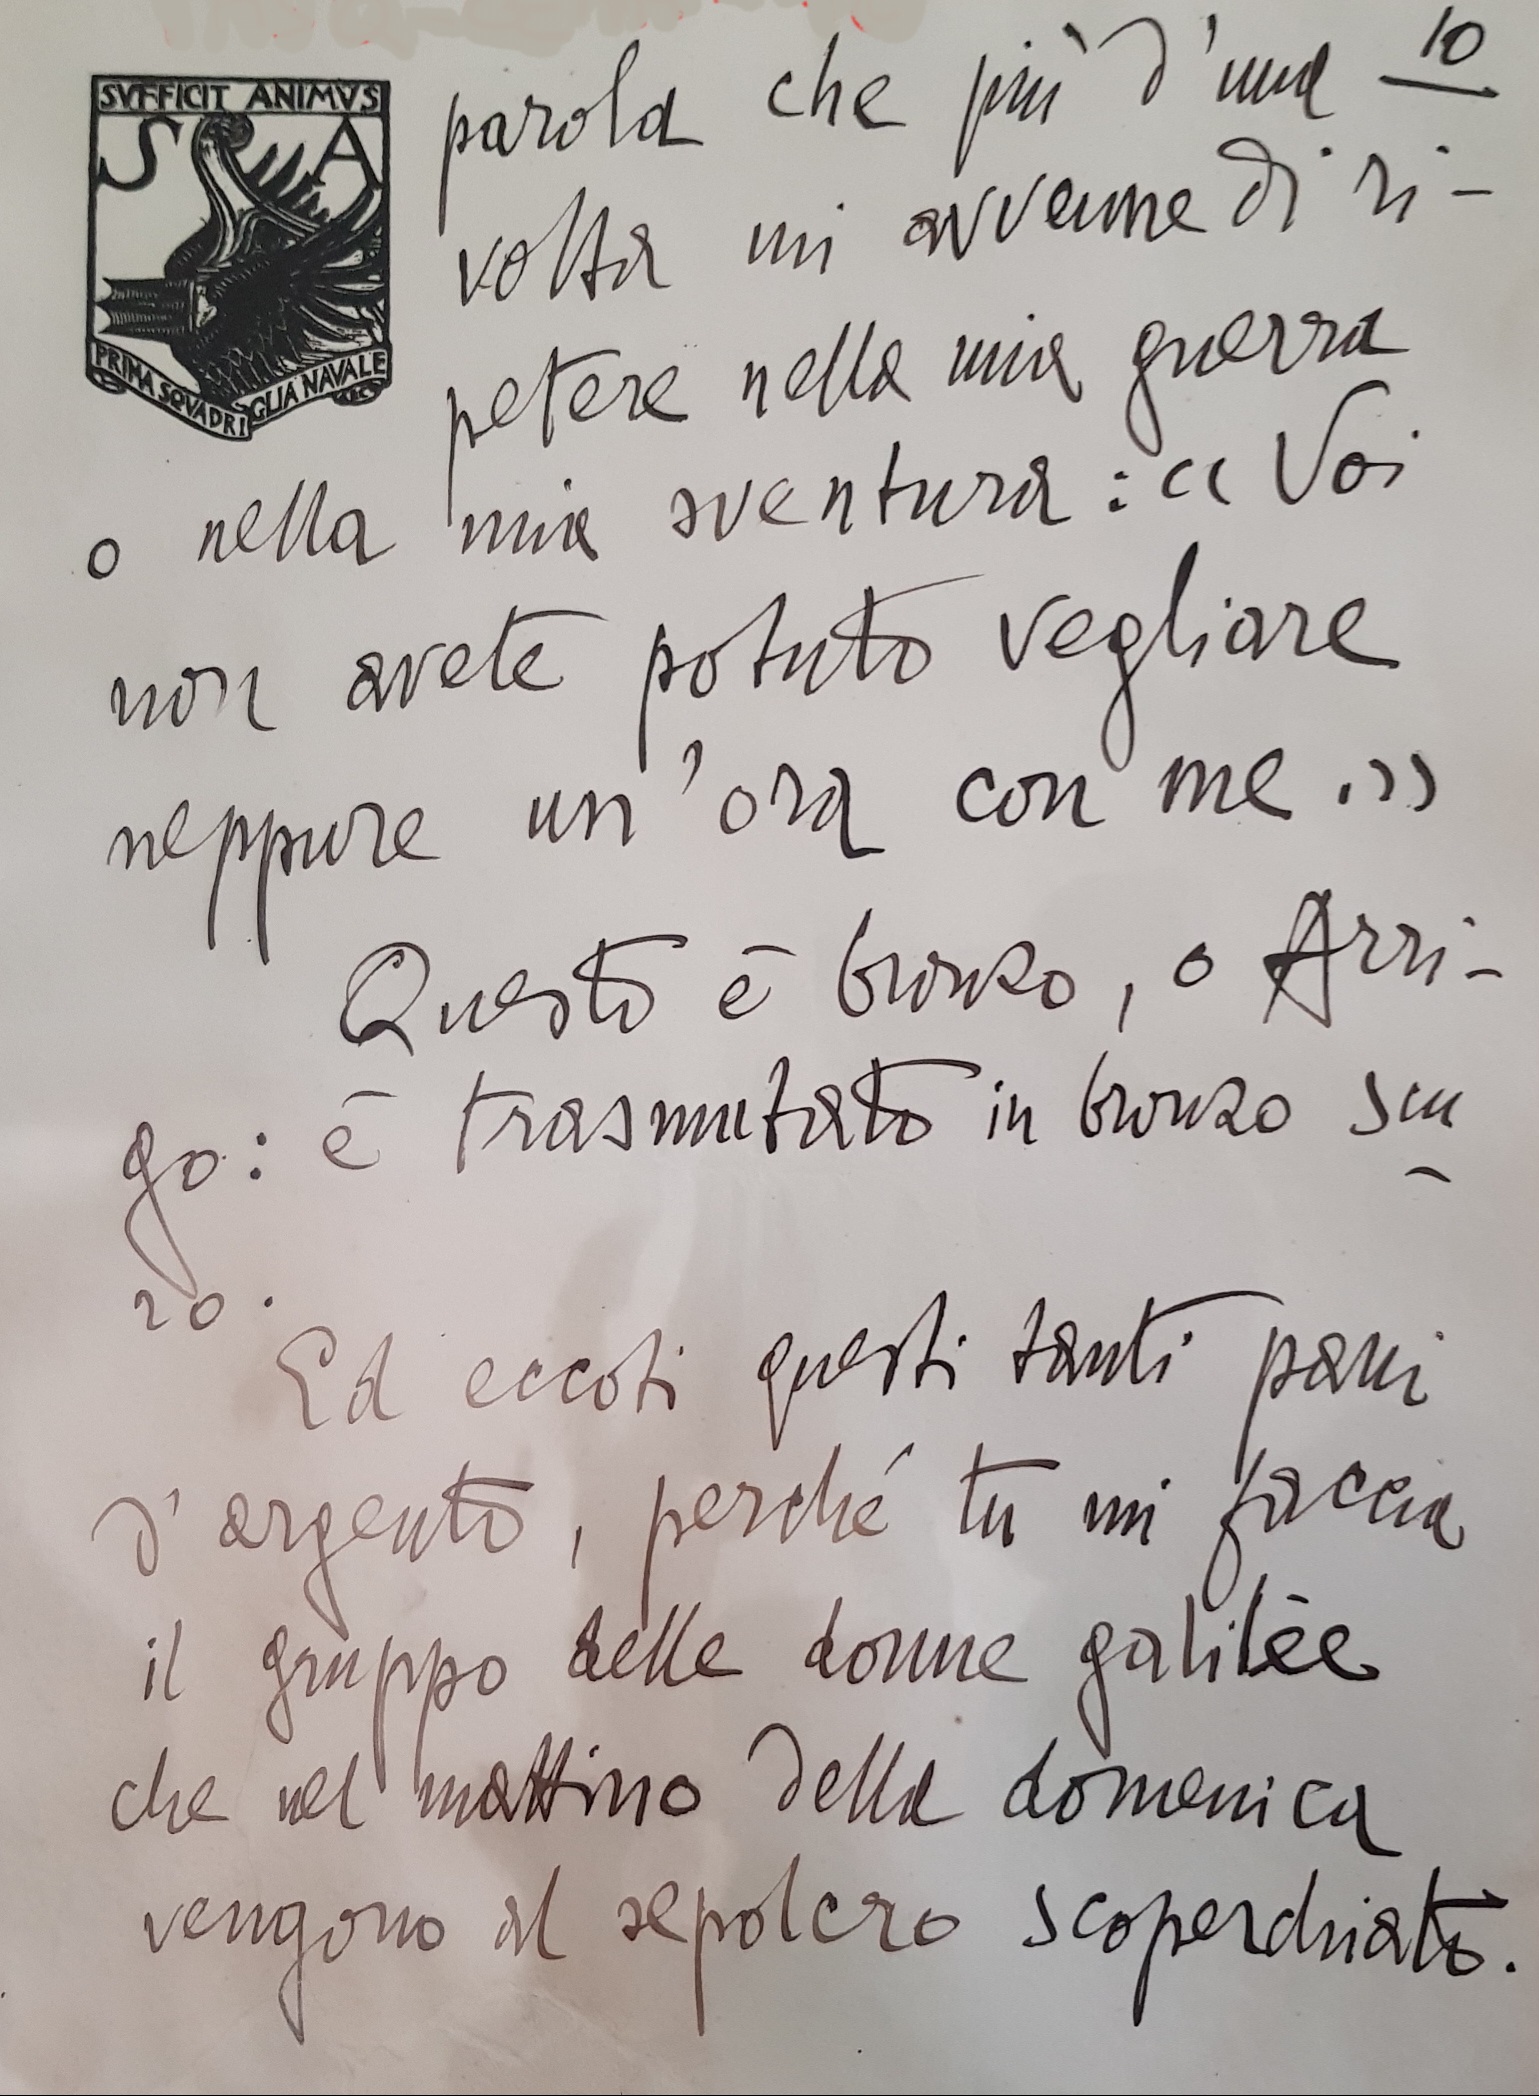 SVFFICIT ANIMVS
S A
PRIMA SQVADRIGLIA NAVALE
10
parola che più d'una
volta mi avvenne di ri-
petere nella mia guerra
o nella mia sventura: « Voi
non avete potuto vegliare
neppure un'ora con me. »
Questo è bronzo, o Arri-
go: è trasmutato in bronzo scu-
ro.
Ed eccoti questi tanti pani
d'argento, perché tu mi faccia
il gruppo delle donne galilèe
che nel mattino della domenica
vengono al sepolcro scoperchiato.